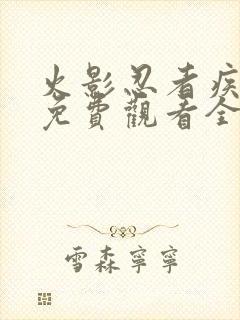 火影忍者疾
免費觀看全
雪森寧寧